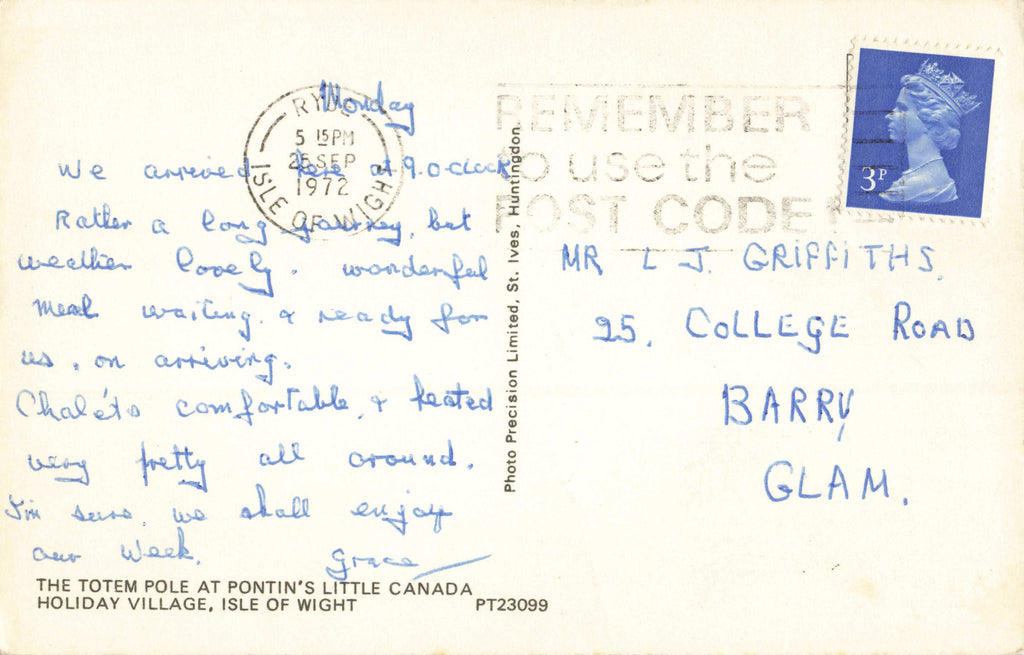 Monday
We arrived here at 9.oclock
Rather a long journey, but
weather lovely. wonderful
meal waiting. & ready for
us, on arriving.
Chaléts comfortable, & heated
very pretty all around.
I'm sure, we shall enjoy
our Week.
Grace
THE TOTEM POLE AT PONTIN'S LITTLE CANADA
HOLIDAY VILLAGE, ISLE OF WIGHT PT23099
Photo Precision Limited, St. Ives, Huntingdon.
RYDE
5 15PM
25 SEP
1972
ISLE OF WIGHT
REMEMBER
to use the
POST CODE
3P
MR L J. GRIFFITHS.
25, COLLEGE ROAD
BARRY
GLAM.